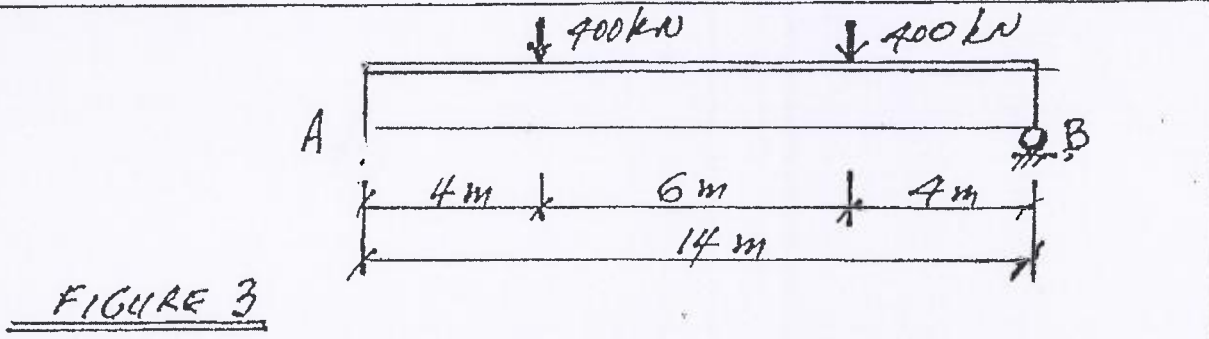 400kN 400kN
A B
4 m 6 m 4 m
14 m
FIGURE 3